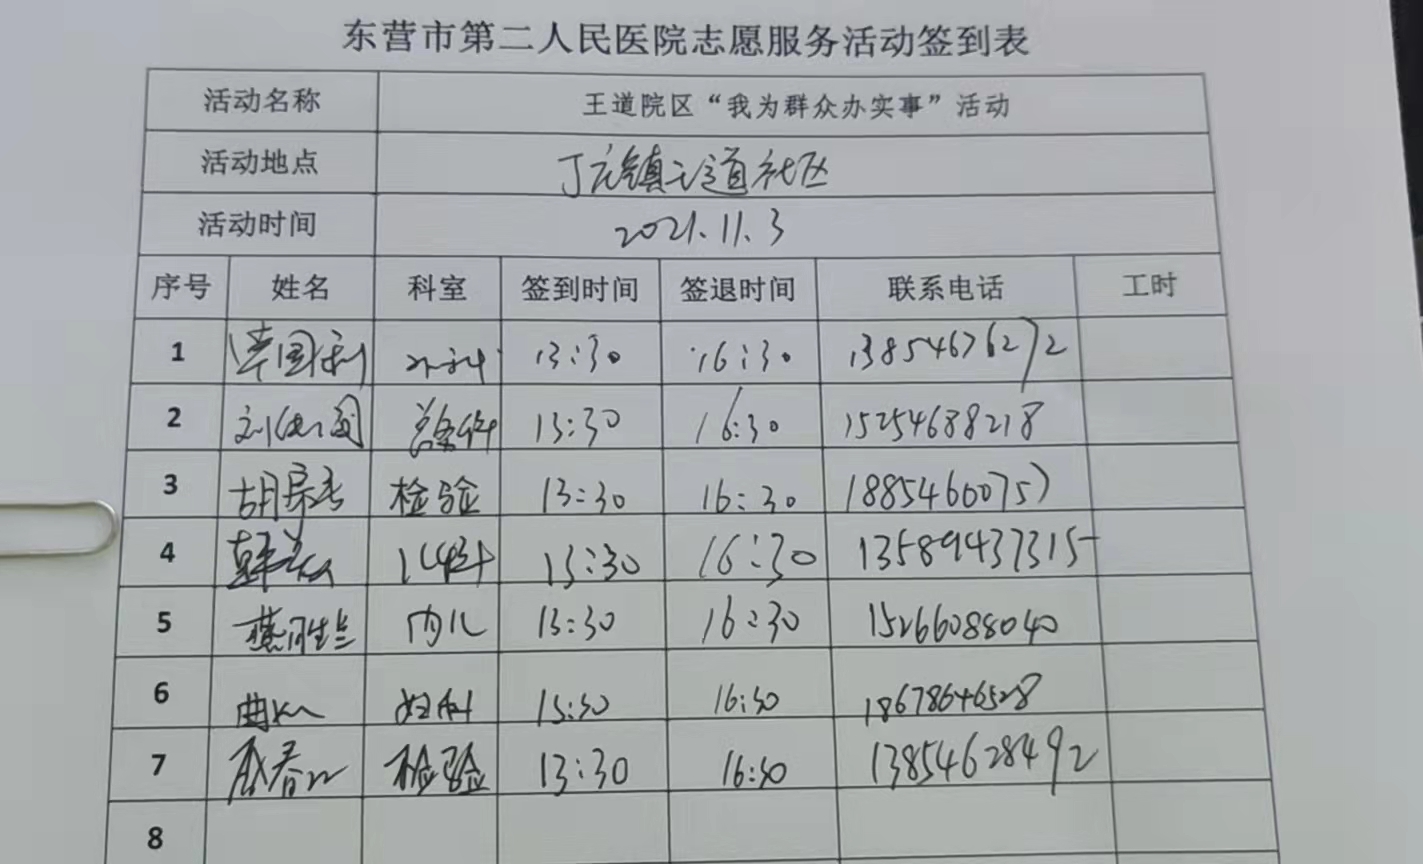 东营市第二人民医院志愿服务活动签到表
活动名称 王道院区“我为群众办实事”活动
活动地点 丁庄镇王道社区
活动时间 2021.11.3
序号 姓名 科室 签到时间 签退时间 联系电话 工时
1 国利 外科 13:30 16:30 13854676272
2 刘 13:30 16:30 15254688218
3 胡 检验 13:30 16:30 18854660757
4 韩 儿科 13:30 16:30 13589437315
5 燕胜兰 内儿 13:30 16:30 15266088040
6 曲 妇科 13:30 16:30 18678646528
7 春 检验 13:30 16:30 13854628492
8